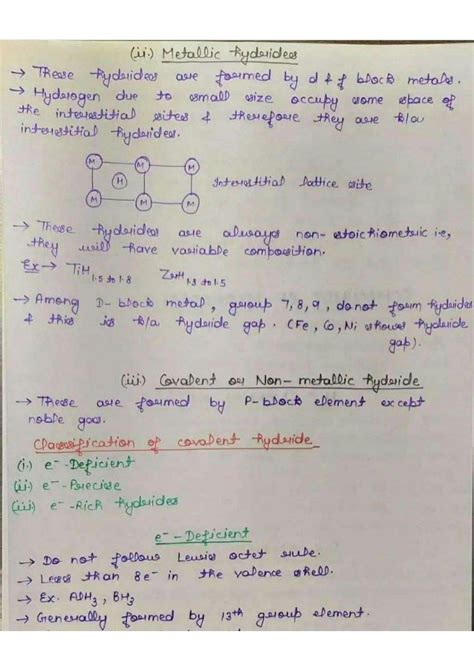 (ii.) Metallic Hydrides
→ These hydrides are formed by d & f block metals.
→ Hydrogen due to small size occupy some space of
the interstitial sites & therefore they are k/a
interstitial hydrides.
M M M
H
M M M
Interstitial lattice site
→ These hydrides are always non-stoichiometric i.e,
they will have variable composition.
Ex → TiH1.5 to 1.8 ZrH1.3 to 1.75
→ Among D-block metal, group 7, 8, 9, do not form hydrides
& this is k/a hydride gap. (Fe, Co, Ni shows hydride
gap).
(iii) Covalent or Non-metallic hydride
→ These are formed by P-block element except
noble gas.
Classification of covalent hydride
(i.) e⁻-Deficient
(ii.) e⁻-Precise
(iii) e⁻-Rich hydrides
e⁻-Deficient
→ Do not follow Lewis octet rule.
→ Less than 8e⁻ in the valence shell.
→ Ex. AlH3, BH3
→ Generally formed by 13th group element.